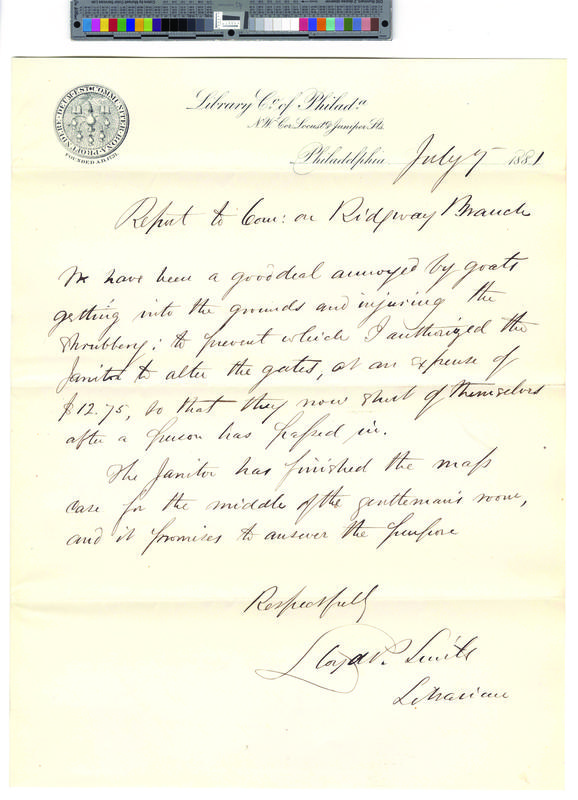 COMMUNITER BONA PROFUNDERE DEUM EST
FOUNDED A.D. 1731.
Library Co. of Philada.
N.W. Cor. Locust & Juniper Sts.
Philadelphia July 7 1881
Report to Com: on Ridgway Branch
We have been a good deal annoyed by goats
getting into the grounds and injuring the
shrubbery; to prevent which I authorized the
Janitor to alter the gates, at an expense of
$12.75, so that they now shut of themselves
after a person has passed in.
The Janitor has finished the map
case for the middle of the gentleman's room,
and it promises to answer the purpose
Respectfully
Lloyd P. Smith
Librarian